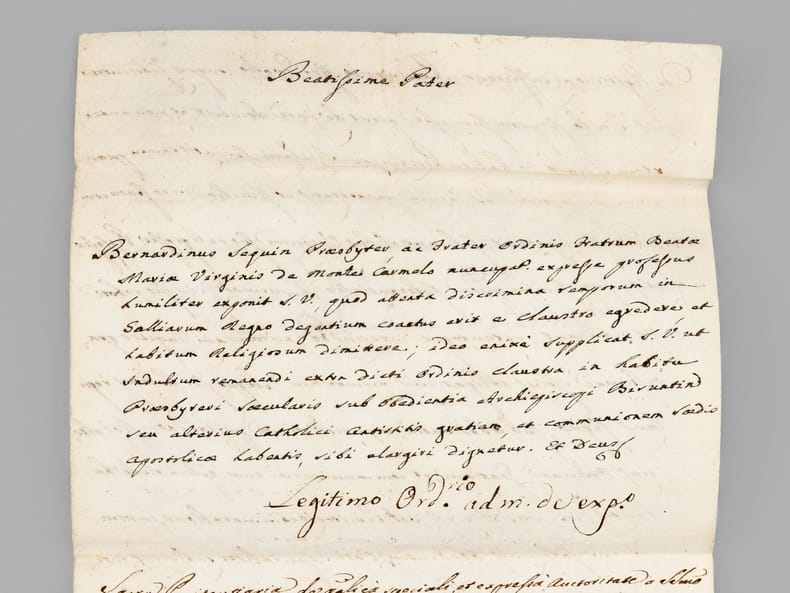 Beatissime Pater
Bernardinus Seguin Præsbyter, ac Frater Ordinis Fratrum Beatæ
Mariæ Virginis de Monte Carmelo nuncupat. expresse professus
humiliter exponit S. V., quod attenta discrimina temporum in
Galliarum Regno degentium coactus erit e claustro egredere et
habitum Religiosum dimittere; ideo enixè supplicat S. V. ut
Indultum remanendi extra dicti Ordinis claustra in habitu
Præsbyteri Sæcularis sub obedientia Archiepiscopi Bisuntin
seu alterius Catholici Antistitis gratiam, et communionem Sædis
Apostolicæ habentis, sibi elargiri dignetur. Et Deus
Legitimo Ord.rio adm. de exp.o
Sacra Pænitentiaria speciali, et expressa Auctoritate a